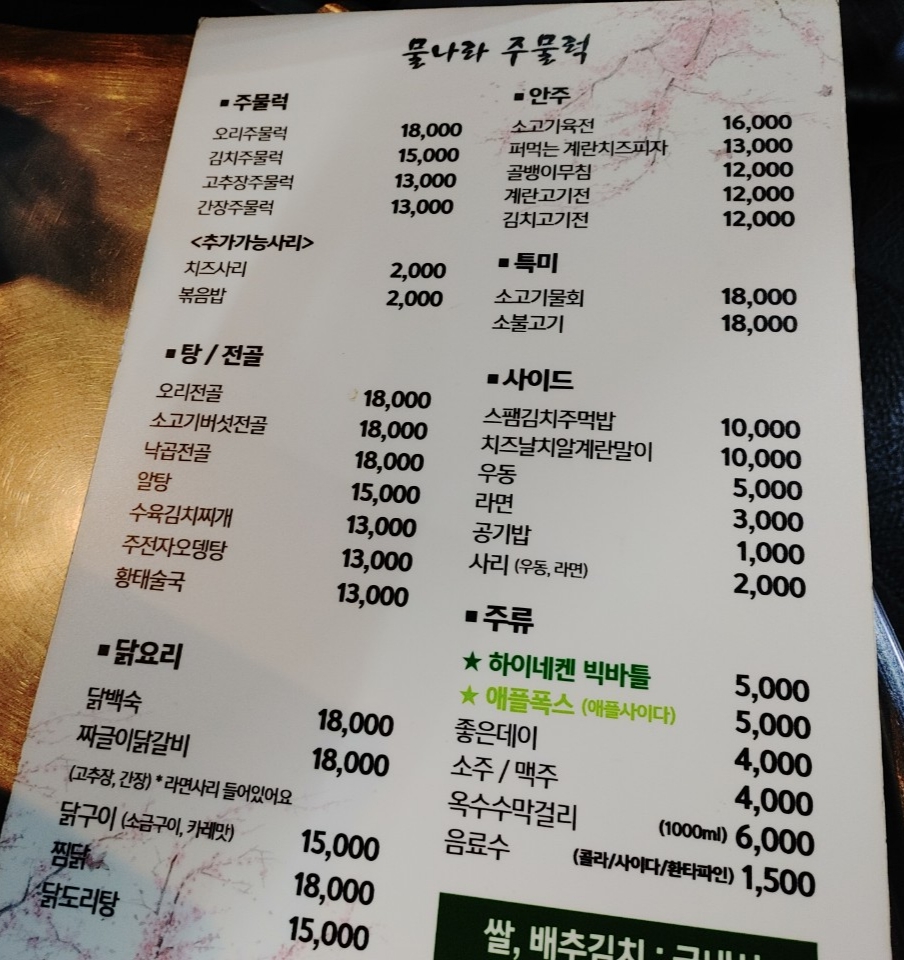 물나라 주물럭
■ 주물럭
오리주물럭 18,000
김치주물럭 15,000
고추장주물럭 13,000
간장주물럭 13,000
<추가가능사리>
치즈사리 2,000
볶음밥 2,000
■ 탕 / 전골
오리전골 18,000
소고기버섯전골 18,000
낙곱전골 18,000
알탕 15,000
수육김치찌개 13,000
주전자오뎅탕 13,000
황태술국 13,000
■ 닭요리
닭백숙 18,000
짜글이닭갈비 18,000
(고추장, 간장) * 라면사리 들어있어요
닭구이 (소금구이, 카레맛) 15,000
찜닭 18,000
닭도리탕 15,000
■ 안주
소고기육전 16,000
퍼먹는 계란치즈피자 13,000
골뱅이무침 12,000
계란고기전 12,000
김치고기전 12,000
■ 특미
소고기물회 18,000
소불고기 18,000
■ 사이드
스팸김치주먹밥 10,000
치즈날치알계란말이 10,000
우동 5,000
라면 3,000
공기밥 1,000
사리 (우동, 라면) 2,000
■ 주류
★ 하이네켄 빅바틀 5,000
★ 애플폭스 (애플사이다) 5,000
좋은데이 4,000
소주 / 맥주 4,000
옥수수막걸리 (1000ml) 6,000
음료수 (콜라/사이다/환타파인) 1,500
쌀, 배추김치 :